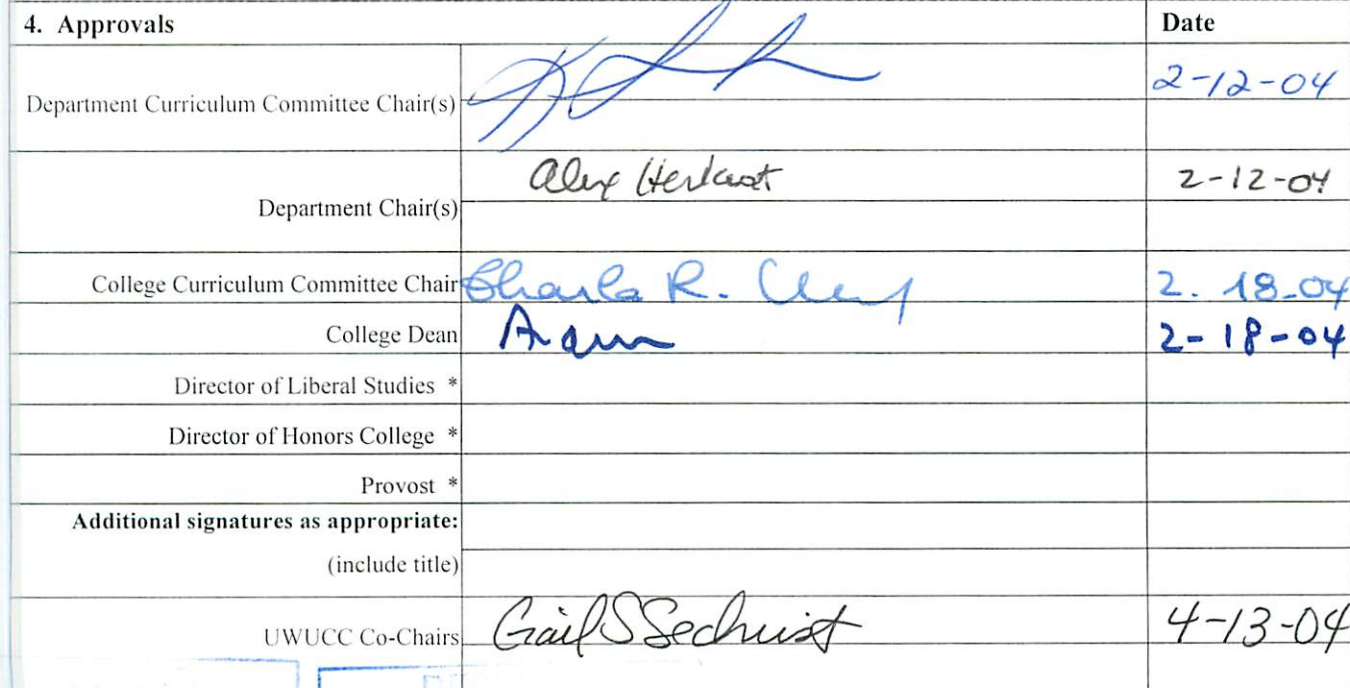 4. Approvals Date
Department Curriculum Committee Chair(s) 2-12-04
Department Chair(s) Alex 2-12-04
College Curriculum Committee Chair R. 2. 18-04
College Dean 2-18-04
Director of Liberal Studies *
Director of Honors College *
Provost *
Additional signatures as appropriate:
(include title)
UWUCC Co-Chairs Gail S Sechrist 4-13-04